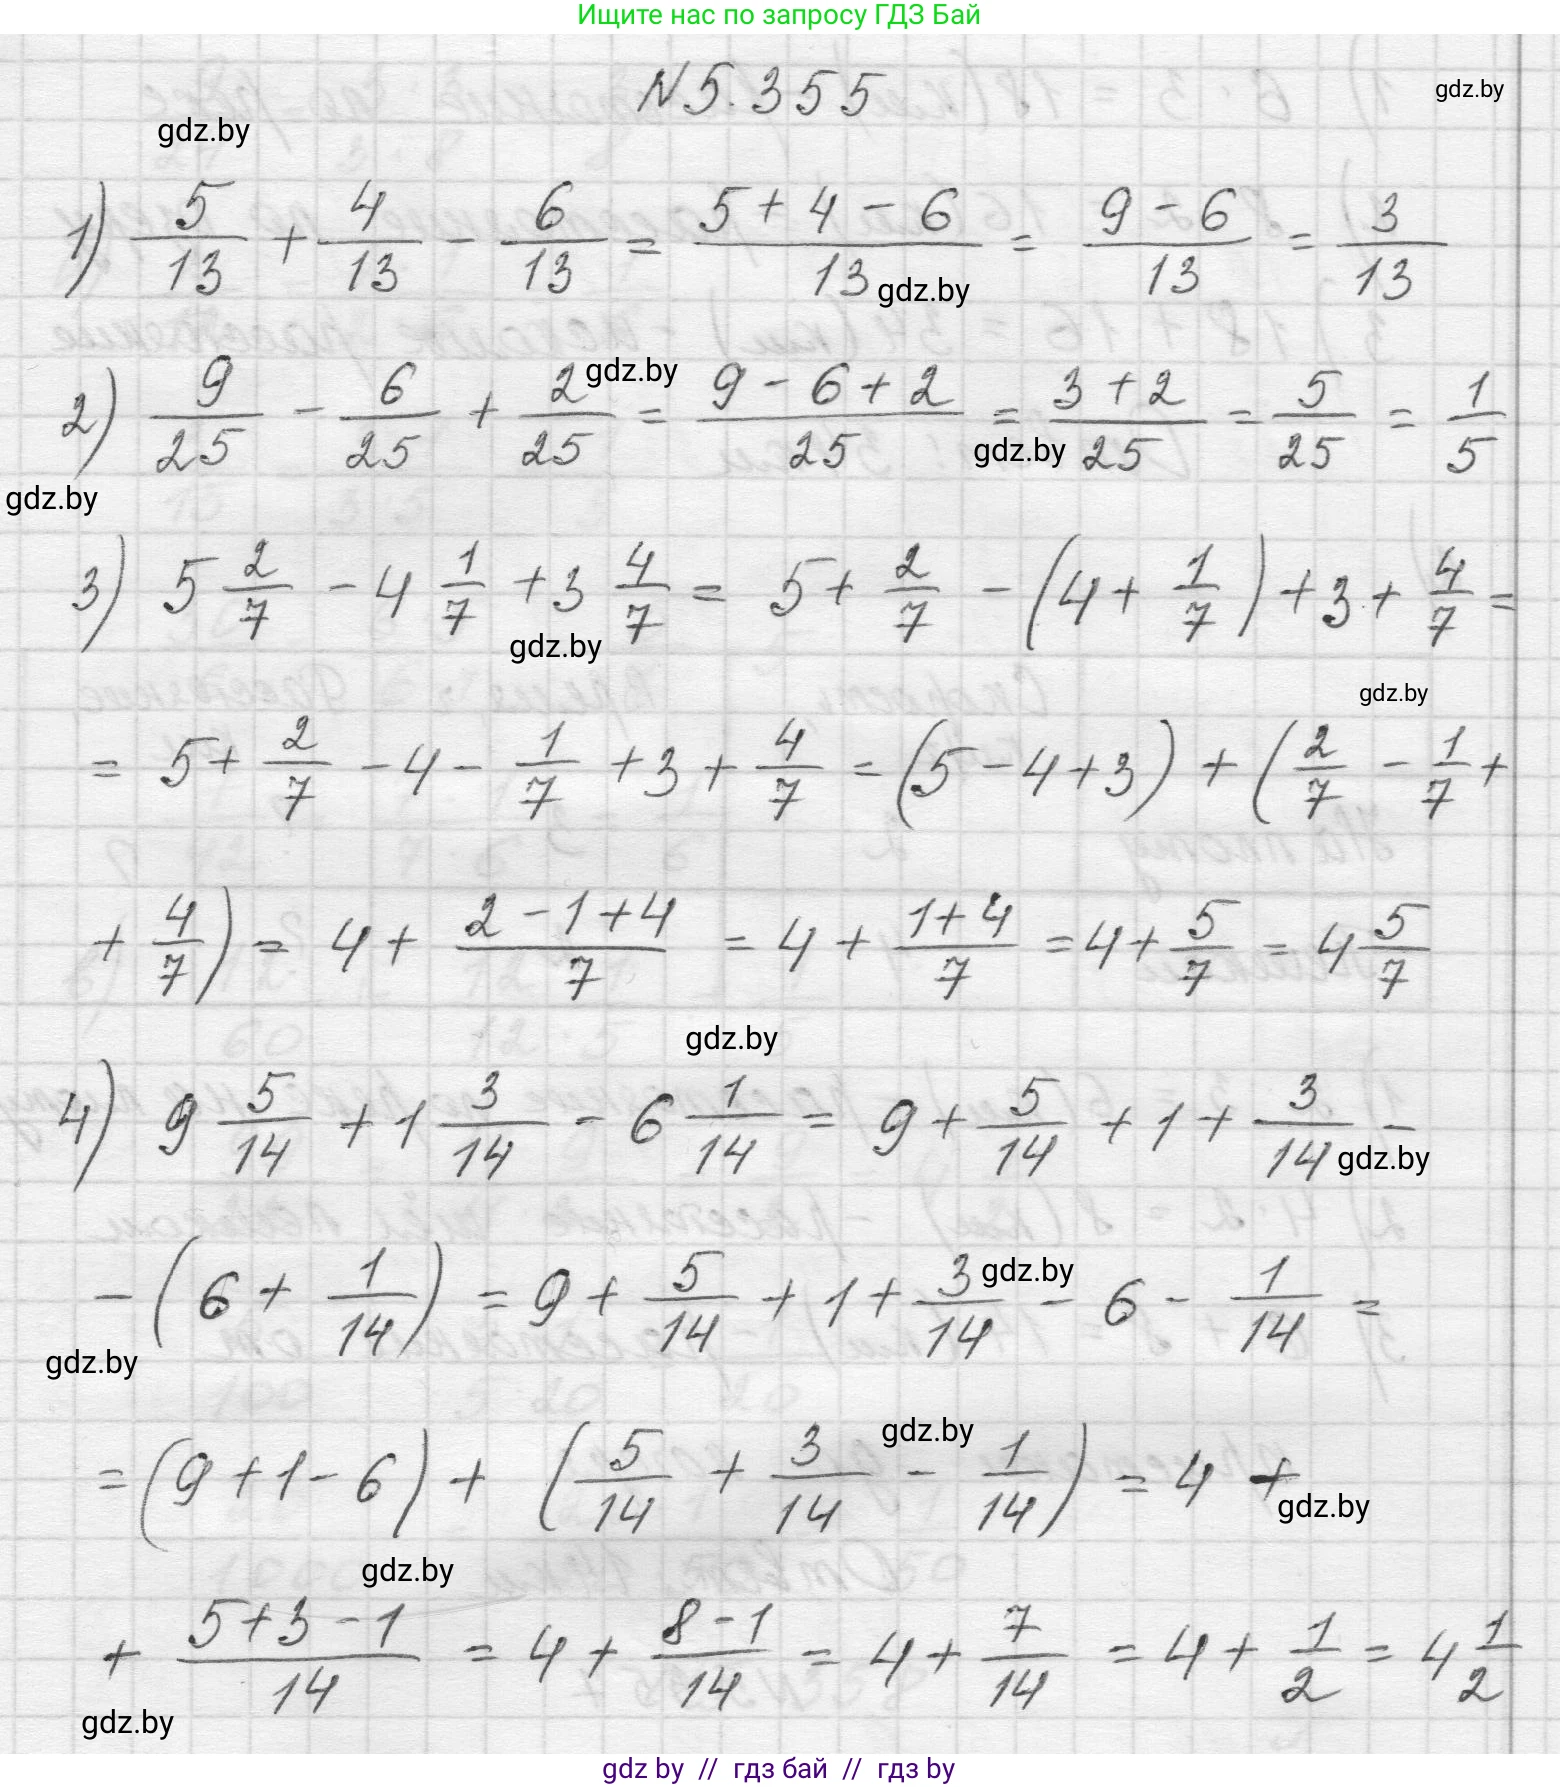 Ищите нас по запросу ГДЗ Бай
N 5.355
gdz.by
gdz.by
1) 5/13 + 4/13 - 6/13 = (5+4-6)/13 = (9-6)/13 = 3/13
gdz.by
2) 9/25 - 6/25 + 2/25 = (9-6+2)/25 = (3+2)/25 = 5/25 = 1/5
gdz.by
gdz.by
gdz.by
3) 5 2/7 - 4 1/7 + 3 4/7 = 5 + 2/7 - (4 + 1/7) + 3 + 4/7 =
gdz.by
gdz.by
= 5 + 2/7 - 4 - 1/7 + 3 + 4/7 = (5-4+3) + (2/7 - 1/7 +
+ 4/7) = 4 + (2-1+4)/7 = 4 + (1+4)/7 = 4 + 5/7 = 4 5/7
gdz.by
4) 9 5/14 + 1 3/14 - 6 1/14 = 9 + 5/14 + 1 + 3/14 -
gdz.by
- (6 + 1/14) = 9 + 5/14 + 1 + 3/14 - 6 - 1/14 =
gdz.by
gdz.by
= (9+1-6) + (5/14 + 3/14 - 1/14) = 4 +
gdz.by
gdz.by
gdz.by
+ (5+3-1)/14 = 4 + (8-1)/14 = 4 + 7/14 = 4 + 1/2 = 4 1/2
gdz.by
gdz by // гдз бай // гдз by